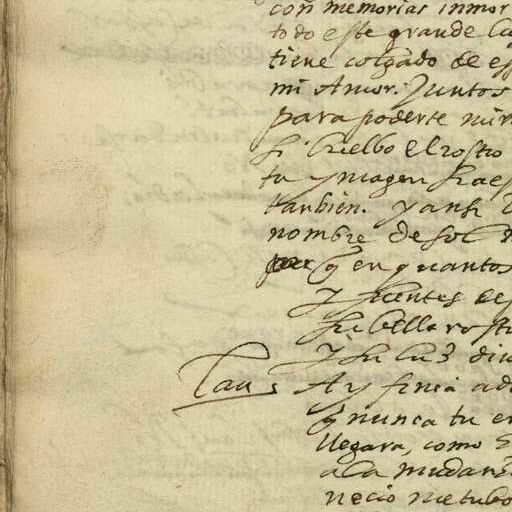 con memorias inmor
todo este grande lu
tiene colgado de es
mi Amor. Juntos
para poderte mir
si buelbo el rostro
tu ymagen hae
tanbien. y ansi
nombre de sol
q en quantos
y fuentes de
su bello rostr
y su luz diu
Lau s Ay finea ad
q nunca tu en
llegara, como
a la mudanz
necio me tubo